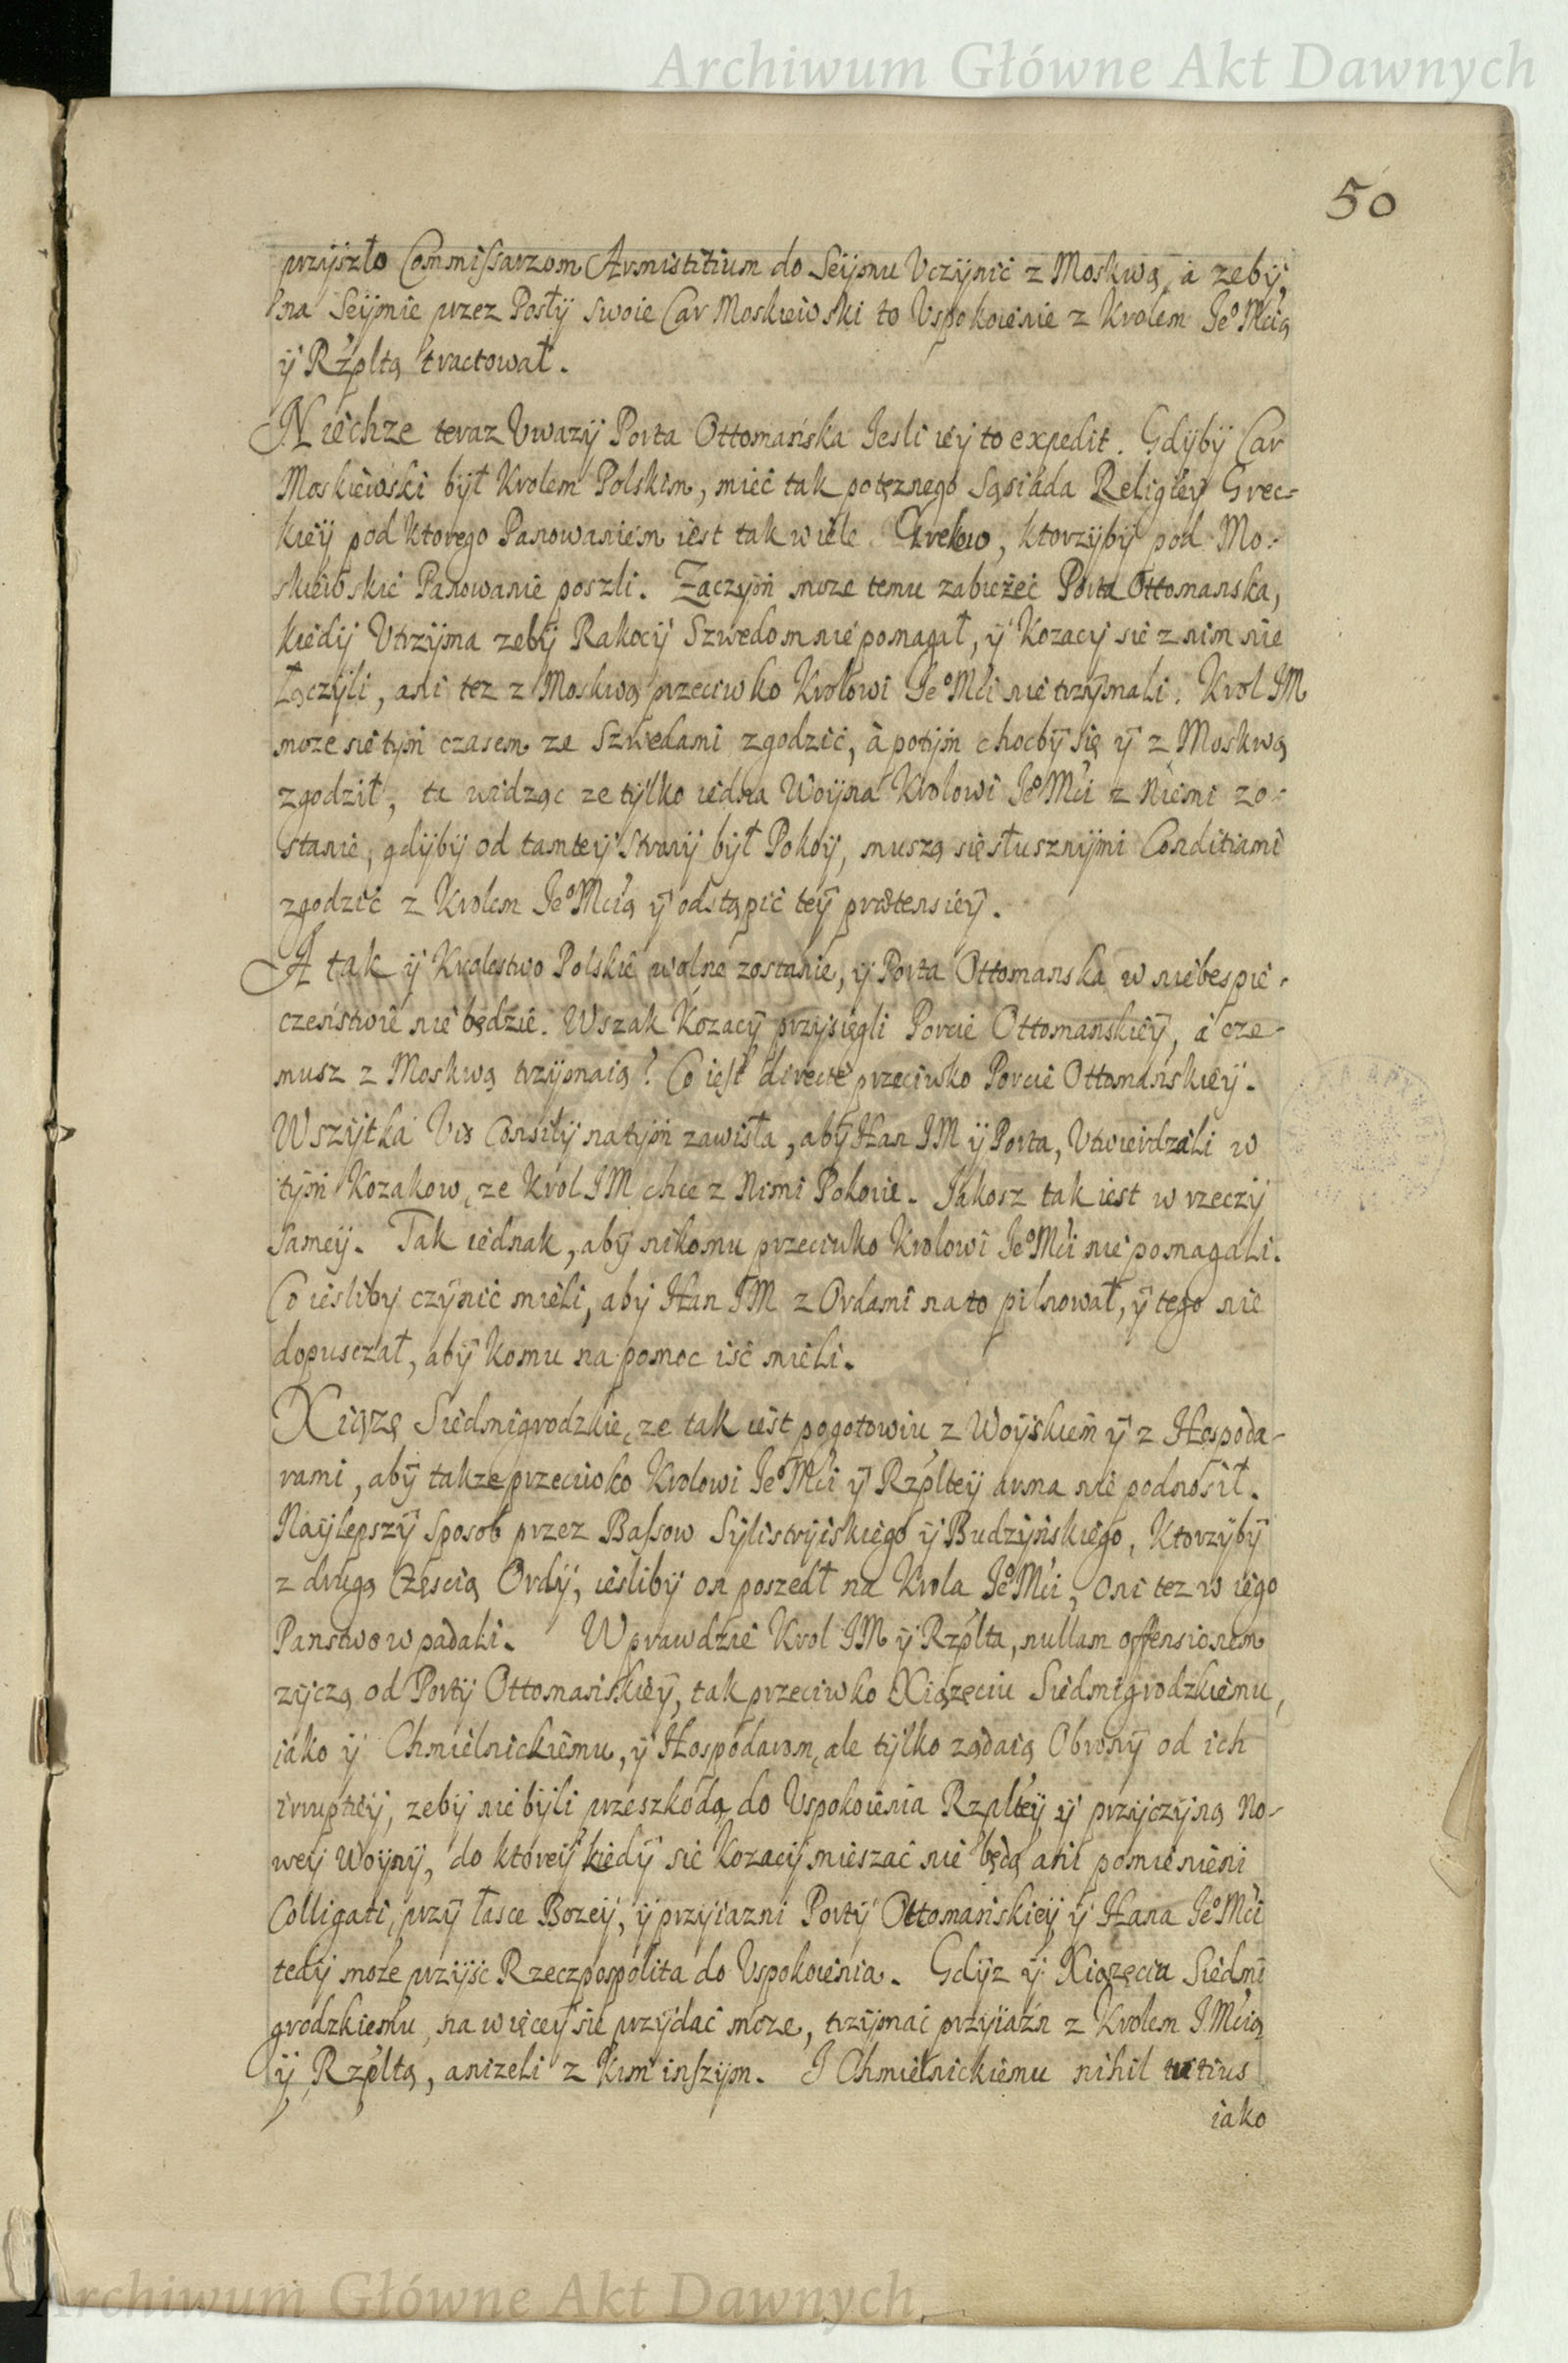 Archiwum Główne Akt Dawnych
50
przyszło Commissarzom Armistitium do Seijmu Vczynić z Moskwą, a zeby,
na Seijmie przez Posły swoie Car Moskiewski to Vspokoienie z Krolem Je⁰Mcią
ÿ Rzpltą tractował.
Niechze teraz Vwazy Porta Ottomańska Iesli iey to expedit. Gdyby Car
Moskiewski był Krolem Polskim, mieć tak potęznego Sąsiada Religiey Grec-
kieÿ pod ktorego Panowaniem iest tak wiele Grekow, ktorzyby pod Mo-
skiewskie Panowanie poszli. Zaczym moze temu zabiezeć Porta Ottomanska,
kiedy Vtrzyma zeby Rakocy Szwedom nie pomagał, ÿ Kozacy sie z nim nie
łączyli, ani tez z Moskwą przeciwko Krolowi Je⁰Mci nie trzymali. Krol JM
moze sie tym czasem ze Szwedami zgodzić, à potym chocby się ÿ z Moskwą
zgodził, tu widząc ze tylko iedna Woyna Krolowi Je⁰Mci z Niemi zo-
stanie, gdyby od tamtey Strony był Pokoy, muszą się słusznymi Conditiami
zgodzić z Krolem Je⁰Mcią ÿ odstąpić tey prætensiey.
A tak ÿ Krolestwo Polskie wolne zostanie, ÿ Porta Ottomanska w niebespie-
czeństwie nie będzie. Wszak Kozacy przysięgli Porcie Ottomanskiey, à cze-
musz z Moskwą trzymaią? Co iest directe przeciwko Porcie Ottomańskiey.
Wszytka Vis Consilÿ na tym zawisła, aby Han JM ÿ Porta, Vtwierdzali w
tym Kozakow, ze Krol JM chce z Nimi Pokoie. Jakosz tak iest w rzeczy
Samey. Tak iednak, aby nikomu przeciwko Krolowi Je⁰Mci nie pomagali.
Co iesliby czynić mieli, aby Han JM z Ordami na to pilnował, ÿ tego nie
dopusczał, aby komu na pomoc iść mieli.
Xiązę Siedmigrodzkie, ze tak iest pogotowiu z Woyskiem ÿ z Hospoda-
rami, aby takze przeciwko Krolowi Je⁰Mci ÿ Rzpltey arma nie podnosił.
Naylepszy Sposob przez Bassow Sylistryiskiego ÿ Budzyńskiego, Ktorzyby
z drugą Częscią Ordy, iesliby on poszedł na Krola Je⁰Mci, oni tez w iego
Panstwo wpadali. Wprawdzie Krol JM ÿ Rzplta, nullam offensionem
zyczą od Porty Ottomanskiey, tak przeciwko Xiązęciu Siedmigrodzkiemu,
iako ÿ Chmielnickiemu, ÿ Hospodarom, ale tylko ządaią Obrony od ich
irruptiey, zeby nie byli przeszkodą do Vspokoienia Rzpltey ÿ przyczyną No-
wey Woyny, do ktorey kiedy sie Kozacy mieszać nie będą ani pomienieni
Colligati, przy łasce Bozey, ÿ przyiazni Porty Ottomańskiey ÿ Hana Je⁰Mci
tedy może przyść Rzeczpospolita do Vspokoienia. Gdyz ÿ Xiązęciu Siedmi
grodzkiemu, na więcey sie przydać może, trzymać przyiaźn z Krolem JMcią
ÿ Rzpltą, anizeli z kim inszym. I Chmielnickiemu nihil tutius
iako
Archiwum Główne Akt Dawnych